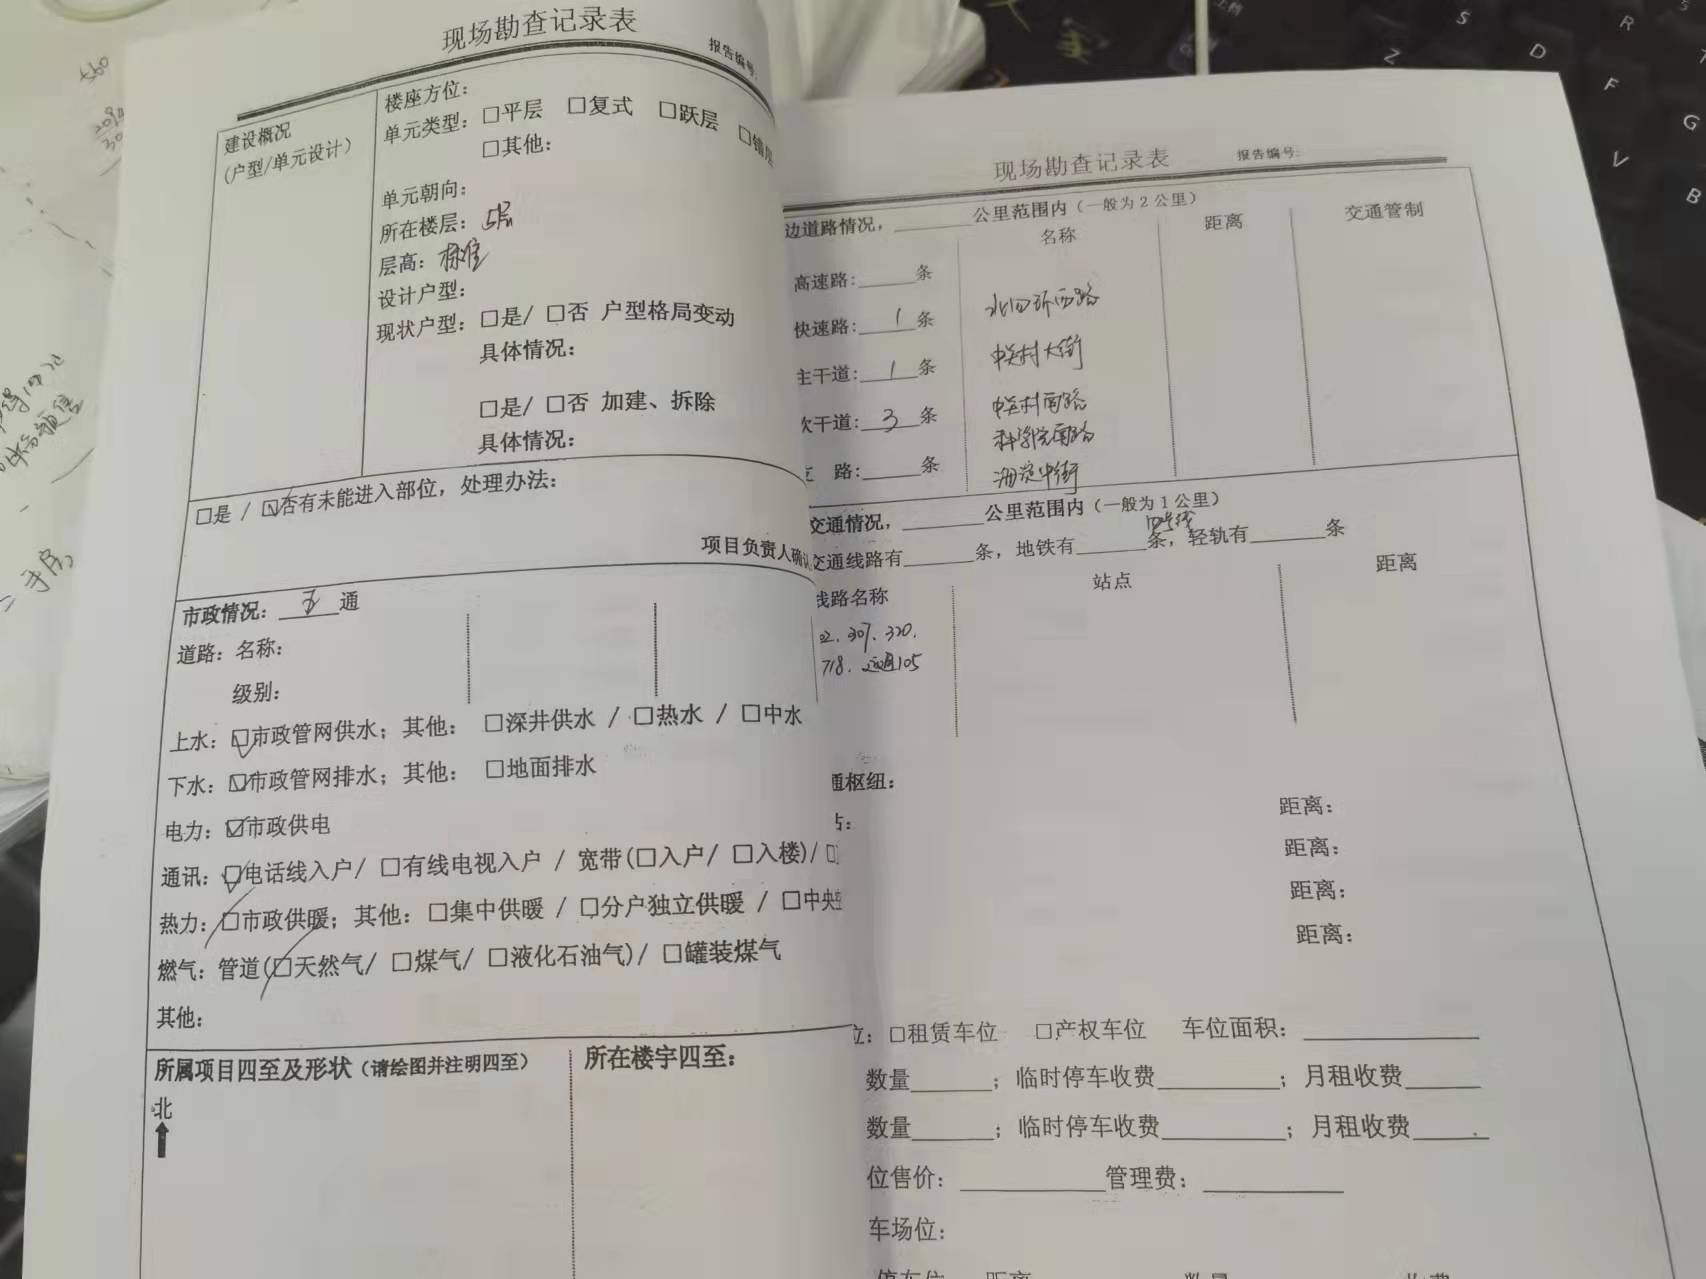 现场勘查记录表
报告编号:
建设概况
(户型/单元设计)
楼座方位:
单元类型: □平层 □复式 □跃层 □错层
□其他:
单元朝向:
所在楼层: 5层
层高: 标准
设计户型:
现状户型: □是/ □否 户型格局变动
具体情况:
□是/ □否 加建、拆除
具体情况:
□是 / ☑否有未能进入部位, 处理办法:
项目负责人确认
市政情况: 五 通
道路: 名称:
级别:
上水: ☑市政管网供水; 其他: □深井供水 / □热水 / □中水
下水: ☑市政管网排水; 其他: □地面排水
电力: ☑市政供电
通讯: ☑电话线入户/ □有线电视入户 / 宽带(□入户/ □入楼)/
热力: ☑市政供暖; 其他: □集中供暖 / □分户独立供暖 / □中央
燃气: 管道(☑天然气/ □煤气/ □液化石油气)/ □罐装煤气
其他:
所属项目四至及形状(请绘图并注明四至)
所在楼宇四至:
北
现场勘查记录表
报告编号:
边道路情况, ______公里范围内(一般为2公里)
名称 距离 交通管制
高速路:____条
快速路: 1 条 北四环西路
主干道: 1 条 中关村大街
次干道: 3 条 中关村南路
科学院南路
路:____条 海淀中街
交通情况, ______公里范围内(一般为1公里)
交通线路有_____条, 地铁有 四号线 条, 轻轨有_____条
线路名称 站点 距离
02. 307. 320.
718. 运通105
通枢纽:
距离:
距离:
距离:
距离:
位: □租赁车位 □产权车位 车位面积: __________
数量_____; 临时停车收费_______; 月租收费____
数量_____; 临时停车收费_______; 月租收费____
位售价: __________管理费: __________
车场位:
停车位 距离 数量 收费